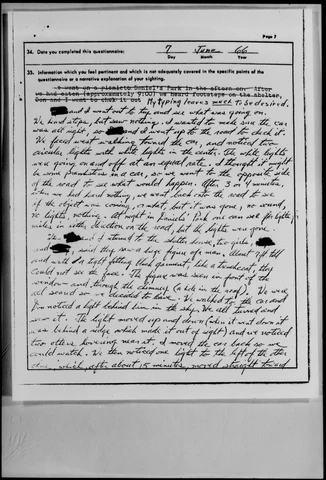 Page 7
34. Date you completed this questionnaire: 7 June 66
Day Month Year
35. Information which you feel pertinent and which is not adequately covered in the specific points of the
questionnaire or a narrative explanation of your sighting.
I went on a picnic to Daniel's Park in the afternoon. After
we had eaten (approxmately 9:00) we heard footsteps on the shelter.
Don and I went to check it out My typing leaves much to be desired.
and I went out to try and see what was going on.
We heard steps, but saw nothing. I wanted to make sure the car
was all right, so and I went up to the road to check it.
We faced west walking toward the car, and noticed two
circular lights with white lights in the center. The white lights
were going on and off at an equal rate. I thought it might
be some pranksters in a car, so we went to the opposite side
of the road to see what would happen. After 3 or 4 minutes,
when we had heard nothing, we went back into the road to see
if the object was coming, or what, but it was gone, no sound,
no lights, nothing. At night in Daniels' Park one can see the lights
miles in either direction on the road, but the lights were gone.
and I returned to the shelter house, two girls,
and said they saw a big figure of a man. About 7 ft tall
and with a tight fitting black garment, like a trenchcoat, they
could not see the face. The figure was seen in front of the
window and through the chimney (a hole in the roof). We were
all scared so we decided to leave. We walked to the car and
Don noticed a light behind him in the sky. We all turned and
saw it. The light moved up and down (when it went down it
was behind a ridge which made it out of sight) and we noticed
two others hovering near it. I moved the car back so we
could watch. We then noticed one light to the left of the other
which, after about 15 minutes, moved straight toward